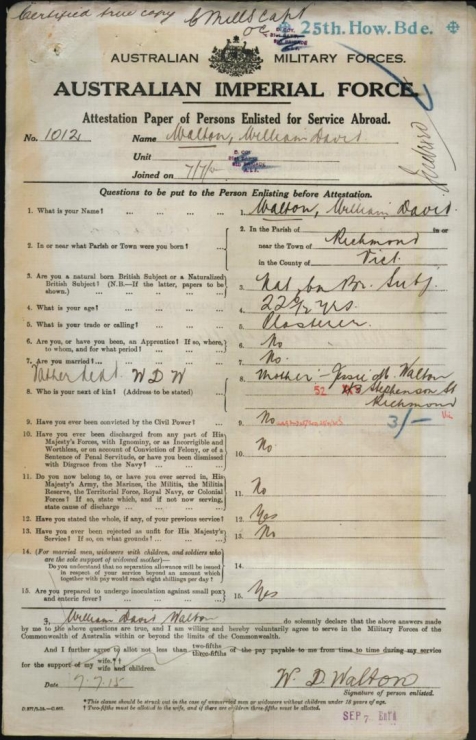 Certified true copy C Mills Capt
OC
✠ 25th. How. Bde. ✠
AUSTRALIAN MILITARY FORCES.
AUSTRALIAN IMPERIAL FORCE.
Attestation Paper of Persons Enlisted for Service Abroad.
No. 1012 Name Walton, William David
Unit
Joined on 7/7/15
Questions to be put to the Person Enlisting before Attestation.
1. What is your Name? ... ... ... 1. Walton, William David.
2. In or near what Parish or Town were you born? ... 2. In the Parish of in or
near the Town of Richmond
in the County of Vict.
3. Are you a natural born British Subject or a Naturalized
British Subject? (N.B.—If the latter, papers to be
shown.) ... ... ... 3. Nat. bn Br. Subj.
4. What is your age? ... ... ... 4. 22 yrs.
5. What is your trade or calling? ... ... 5. Plasterer.
6. Are you, or have you been, an Apprentice? If so, where,
to whom, and for what period? ... ... 6. No
7. Are you married? ... ... ... 7. No.
Father dead. W D W
8. Who is your next of kin? (Address to be stated) ... 8. Mother Jessie M. Walton
52 Stephenson St
Richmond
Vic
3/-
9. Have you ever been convicted by the Civil Power? ... 9. No
10. Have you ever been discharged from any part of His
Majesty's Forces, with Ignominy, or as Incorrigible and
Worthless, or on account of Conviction of Felony, or of a
Sentence of Penal Servitude, or have you been dismissed
with Disgrace from the Navy? ... ... 10. No
11. Do you now belong to, or have you ever served in, His
Majesty's Army, the Marines, the Militia, the Militia
Reserve, the Territorial Force, Royal Navy, or Colonial
Forces? If so, state which, and if not now serving,
state cause of discharge ... ... 11. No
12. Have you stated the whole, if any, of your previous service? 12. Yes
13. Have you ever been rejected as unfit for His Majesty's
Service? If so, on what grounds? ... 13. No
14. (For married men, widowers with children, and soldiers who
are the sole support of widowed mother)—
Do you understand that no separation allowance will be issued
in respect of your service beyond an amount which
together with pay would reach eight shillings per day? 14.
15. Are you prepared to undergo inoculation against small pox
and enteric fever? ... ... 15. Yes
I, William David Walton do solemnly declare that the above answers made
by me to the above questions are true, and I am willing and hereby voluntarily agree to serve in the Military Forces of the
Commonwealth of Australia within or beyond the limits of the Commonwealth.
And I further agree to allot not less than two-fifths three-fifths of the pay payable to me from time to time during my service
for the support of my wife.*† wife and children.
Date 7.7.15 W. D. Walton
Signature of person enlisted.
*This clause should be struck out in the case of unmarried men or widowers without children under 18 years of age.
†Two-fifths must be allotted to the wife, and if there are children three-fifths must be allotted.
SEP 7